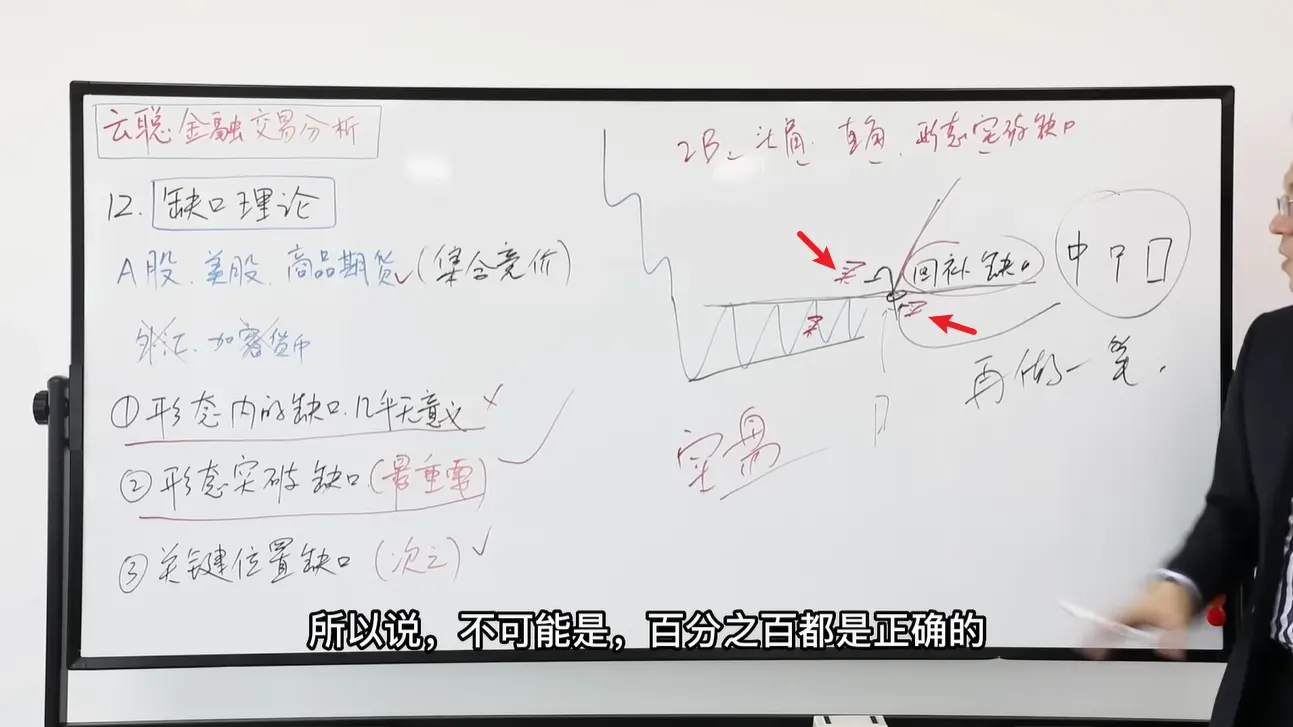 云聪金融交易分析
12. 缺口理论
A股、美股、商品期货(集合竞价)
外汇、加密货币
①形态内的缺口几乎无意义
②形态突破缺口(最重要)
③关键位置缺口(次之)
2B、头肩、直角、形态突破缺口
买
回补缺口
买
买
再做一笔.
所以说，不可能是，百分之百都是正确的